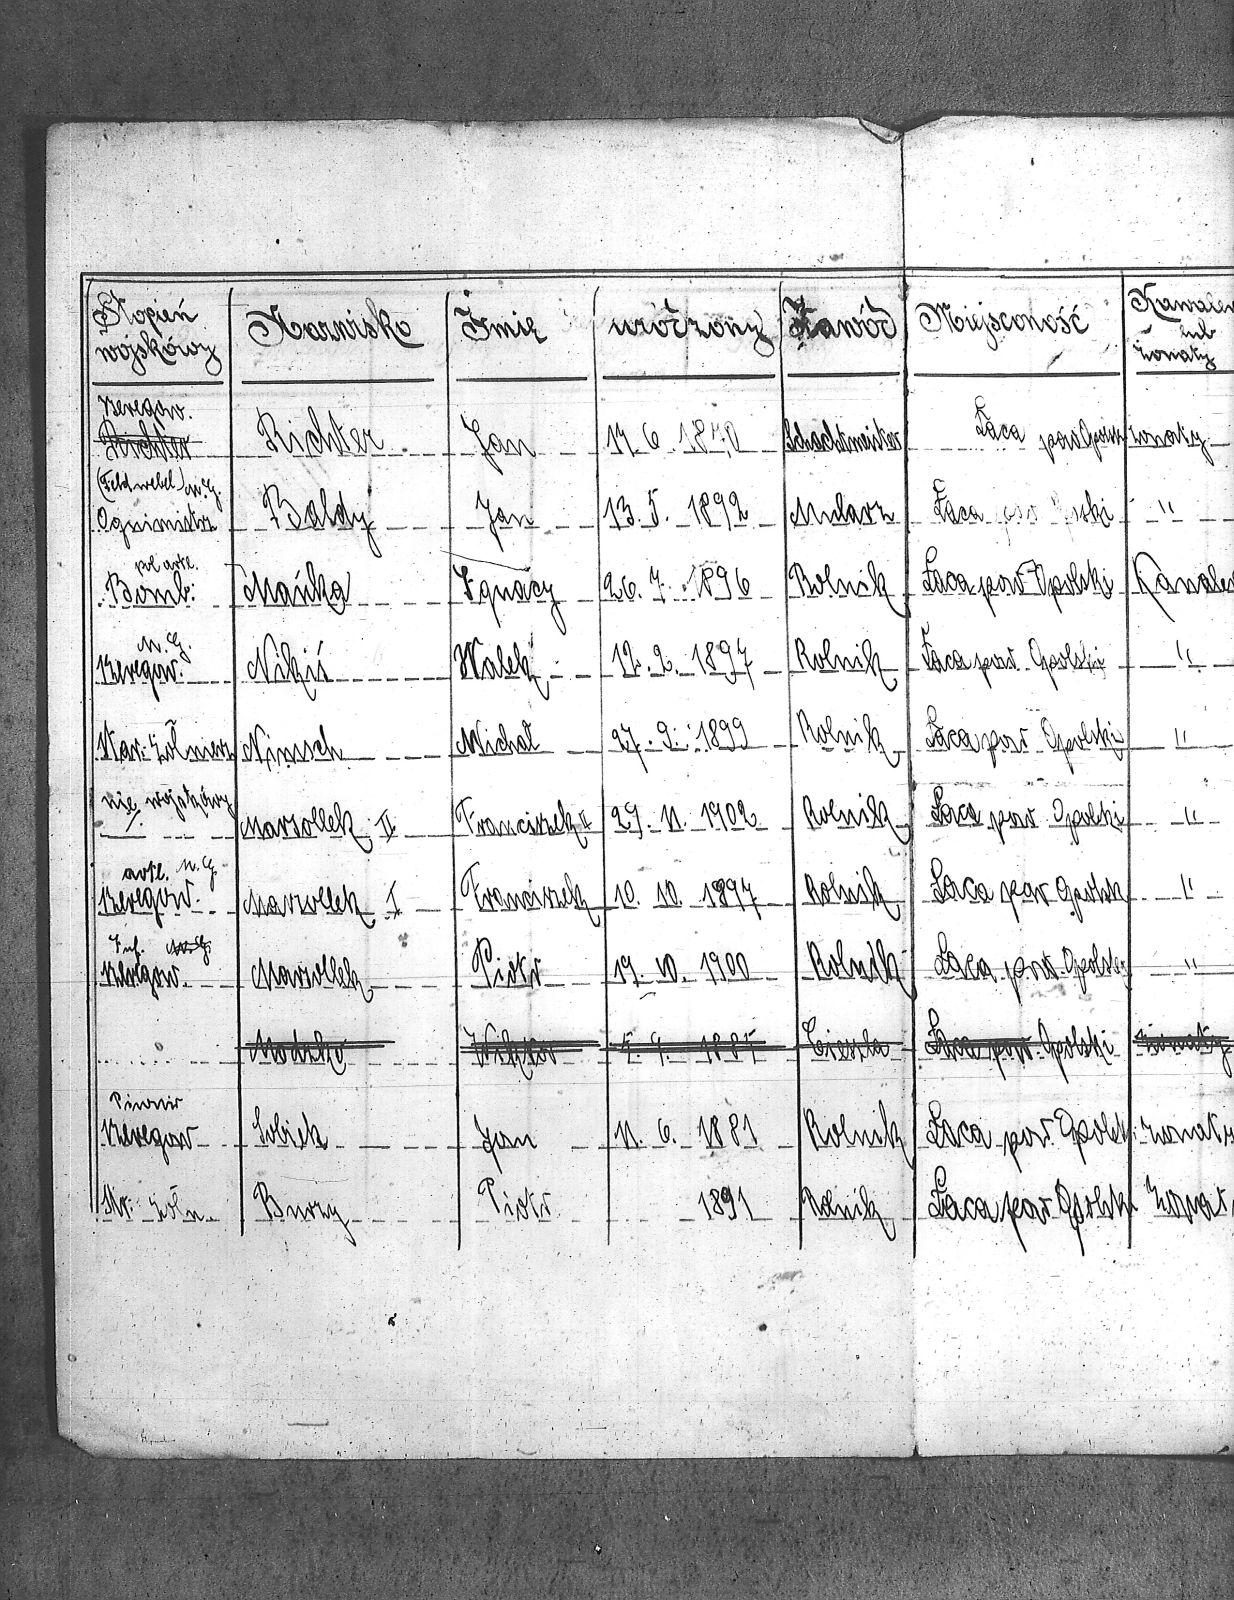 Stopień wojskówy Nazwisko Imię uródzony Zawód Miejscowość Kawaler lub żonaty
szeregow. Richter Richter Jan 17. 6. 1870 Schachtmeister Łąca pow Opolski żonaty
(Feldwebel) M.G. Ogniomistz Baldy Jan 13. 5. 1892 Mularz Łąca pow "
pol arte. Bomb: Mańka Ignacy 26. 7. 1896 Rolnik Łąca pow Opolski Kawaler
M.G. szeregow. Nikiś Walek 12. 2. 1897 Rolnik Łąca pow Opolski "
Nimsch Michał 27. 9. 1899 Rolnik Łąca pow Opolski "
nie wojskówy Marzollek II Franciszek II 29. 11. 1902 Rolnik Łąca pow Opolski "
arte. M.G. szeregow. Marzollek I Franciszek 10. 10. 1897 Rolnik Łąca pow Opolsk "
Inf. M.G. szeregow. Marzollek Piotr 19. 10. 1900 Rolnik Łąca pow Opolsk "
Wiktor 1885 Cieszla Łąca pow Opolski żonaty
Pionnir szeregow Sobiek Jan 11. 6. 1881 Rolnik Łąca pow. Opolski żonaty
żołn. Burzy Piotr 1891 Rolnik Łąca pow Opolski żonaty